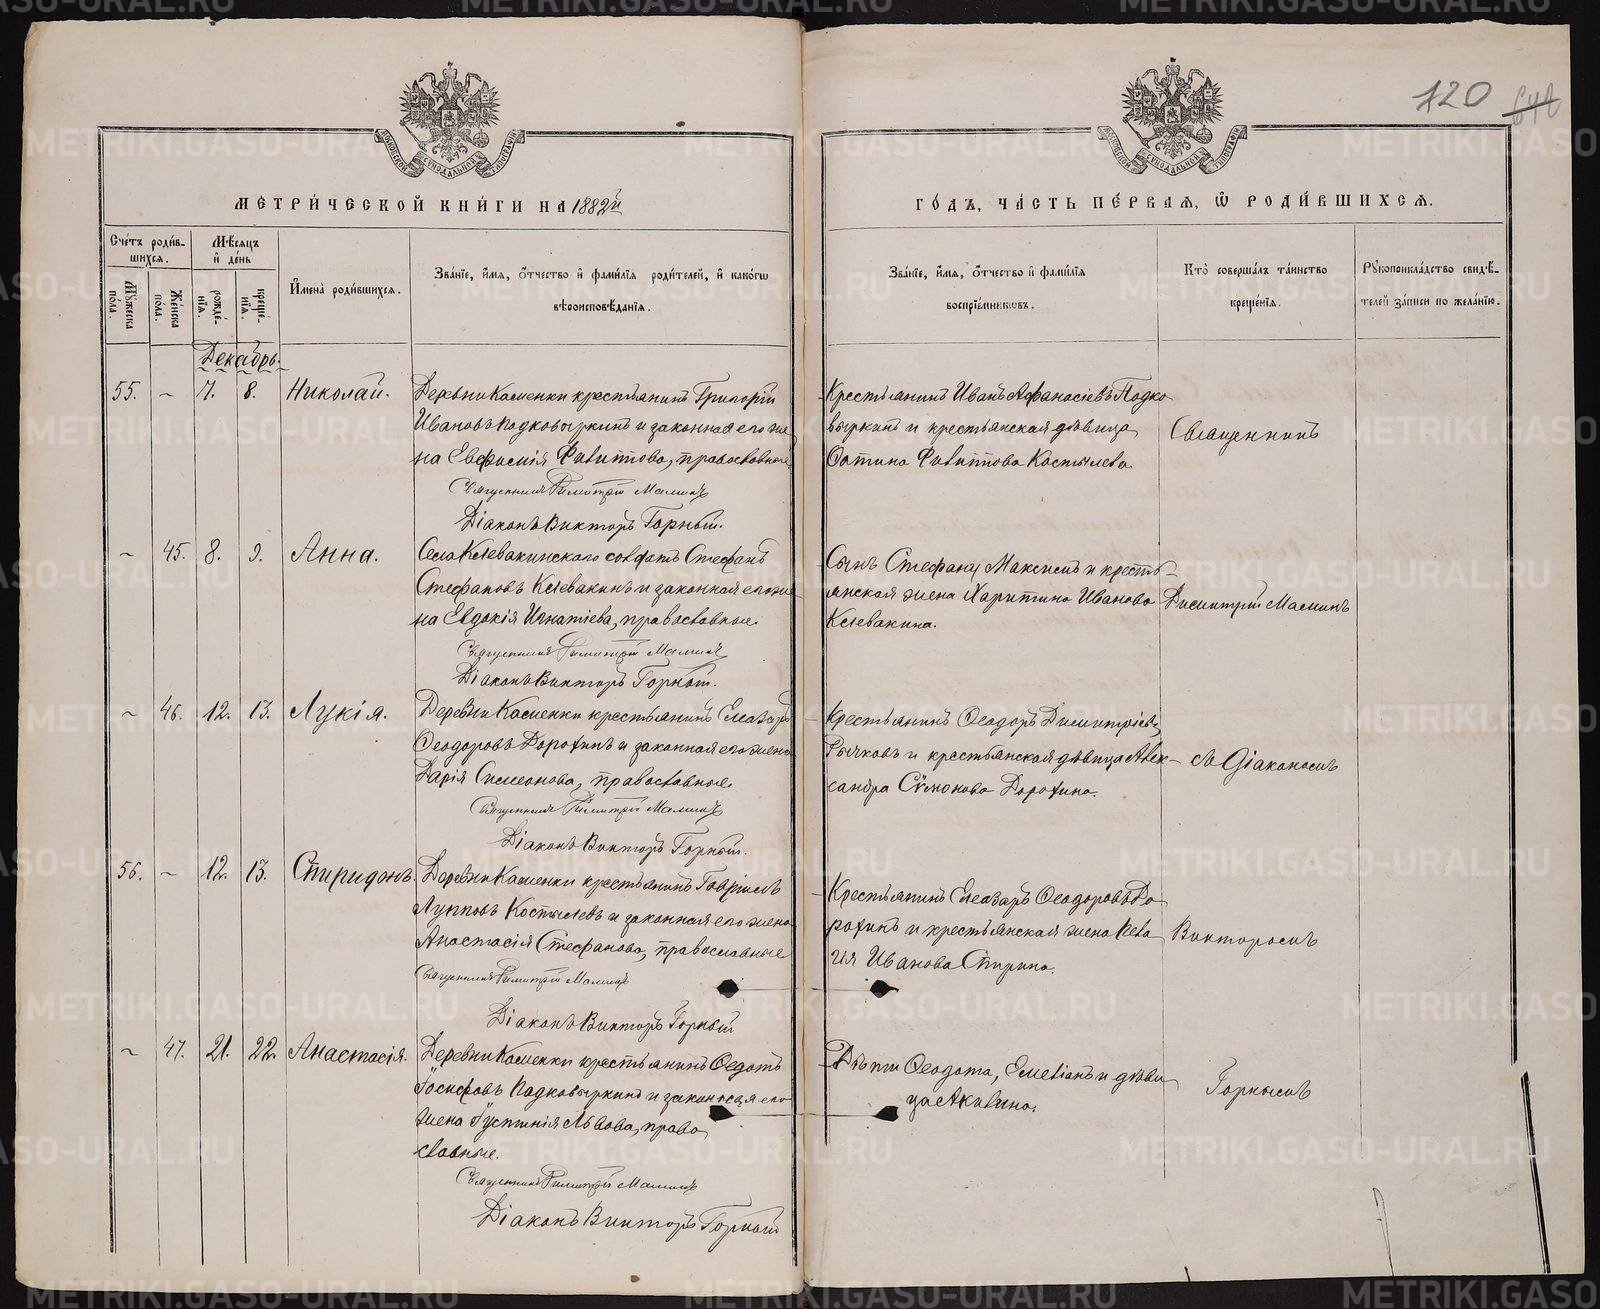 120 640
МЕТРИ́ЧЕСКОЙ КНИ́ГИ НА 1882й
ГО́ДЪ, ЧА́СТЬ ПЕ́РВАЯ, Ѿ РОДИ́ВШИХСЯ.
Сче́тъ роди́в-
шихся.
Му́жеска по́ла.
Же́нска по́ла.
Мѣ́сяцъ
и де́нь
рожде́-
нїя.
креще́-
нїя.
И́мена̀ роди́вшихся.
Зва́нїе, и́мя, о́тчество и фами́лїя роди́телей, и како́гѡ
вѣроисповѣ́данїя.
Зва́нїе, и́мя, о́тчество и фами́лїя
воспрїе́мникѡвъ.
Кто̀ соверша́лъ та́инство
креще́нїя.
Рꙋкоприкла́дство свидѣ́-
телей за́писи по жела́нїю.
Декабрь.
55. ~ 7. 8. Николай.
Деревни Каменки крестьянинъ Григорій
Ивановъ Подковыркинъ и законная его же
на Евфимія Филиппова, православные
Священникъ Димитрій Маминъ
Діаконъ Викторъ Горный.
Крестьянинъ Иванъ Афанасіевъ Подко
выркинъ и крестьянская дѣвица
Филиппова Костылева.
Священникъ
~ 45. 8. 9. Анна.
Села Клевакинскаго солдатъ Стефанъ
Стефановъ Клевакинъ и законная его же
на Евдокія Игнатіева, православные.
Священникъ Димитрій Маминъ
Діаконъ Викторъ Горный.
Сынъ Стефана Максимъ и кресть-
янская жена Харитина Иванова
Клевакина.
Димитрій Маминъ
~ 46. 12. 13. Лукія.
Деревни Каменки крестьянинъ Елеазаръ
Ѳеодоровъ Дорохинъ и законная его жена
Дарія Симеонова, православные
Священникъ Димитрій Маминъ
Діаконъ Викторъ Горный.
Крестьянинъ Ѳеодоръ Димитріевъ
Рычковъ и крестьянская дѣвица Алек-
сандра Дорохина.
съ Діакономъ
56. ~ 12. 13. Спиридонъ.
Деревни Каменки крестьянинъ Гавріилъ
Лупповъ Костылевъ и законная его жена
Анастасія Стефанова, православные
Священникъ Димитрій Маминъ
Діаконъ Викторъ Горный
Крестьянинъ Елеазаръ Ѳеодоровъ До
рохинъ и крестьянская жена Пела
гія Иванова Спирина.
Викторомъ
~ 47. 21. 22. Анастасія.
Деревни Каменки крестьянинъ Ѳедотъ
Іосифовъ Подковыркинъ и законная его
жена Іустинія Львова, право
славные.
Священникъ Димитрій Маминъ
Діаконъ Викторъ Горный
Дѣти Ѳеодота, Емеліанъ и дѣви
ца Акилина.
Горнымъ
METRIKI.GASO-URAL.RU